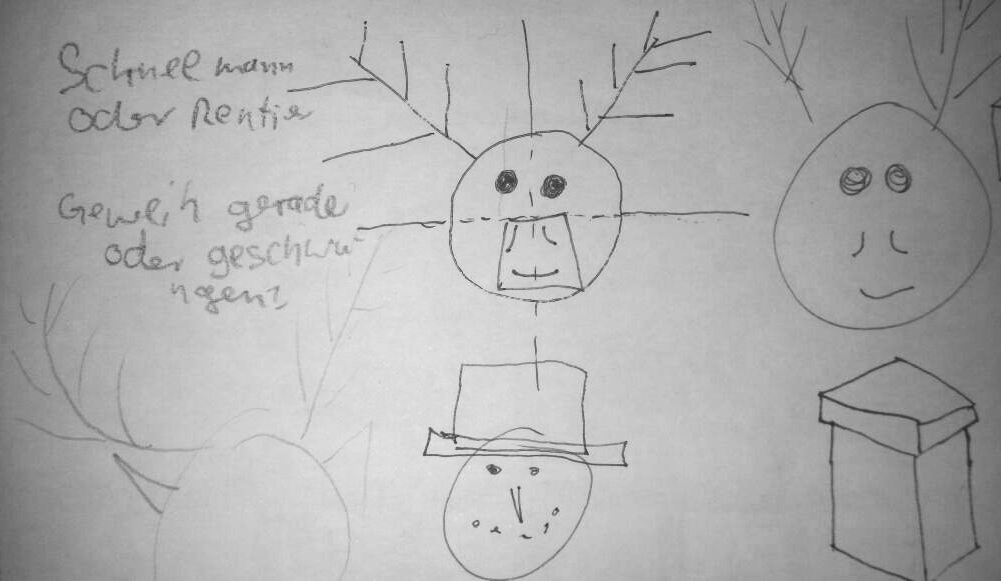 Schneemann
oder Rentier
Geweih gerade
oder geschwu
ngen?